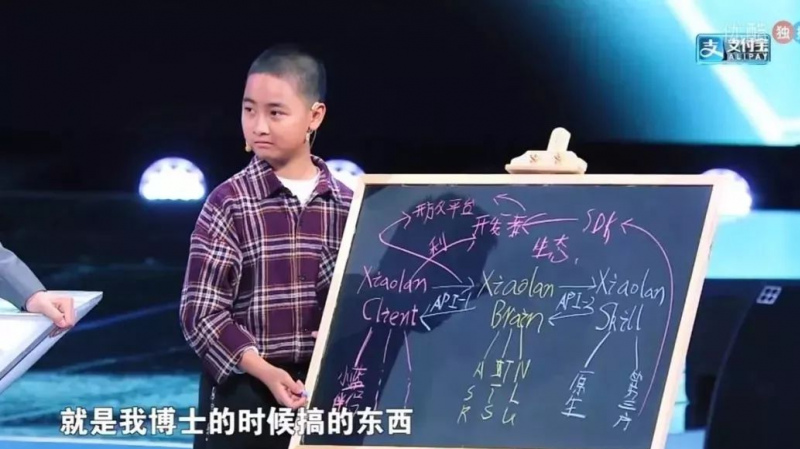 优酷 独
支 支付宝
ALIPAY
开放平台
开发者
SDK
利
生态
Xiaolan Xiaolan Xiaolan
Client API-1 Brain API-2 Skill
小蓝
A T N
S T L
R S U
原生
第三方
就是我博士的时候搞的东西